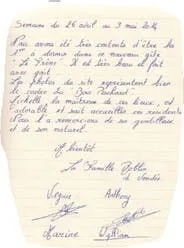 Semaine du 26 avril au 3 mai 2014
Nous avons été très contents d'être les
1ers a dormir dans ce nouveau gîte
"Le Frêne". Il est très beau et fait
avec goût.
Les photos du site représentent bien
le cadre du "Bois
la maîtresse de ces lieux, est
adorable et sait accueillir ses résidents
Nous la remercions de sa gentillesse
et de son naturel.
A bientôt
La Famille
de Vendée
Virginie Anthony
Karine William